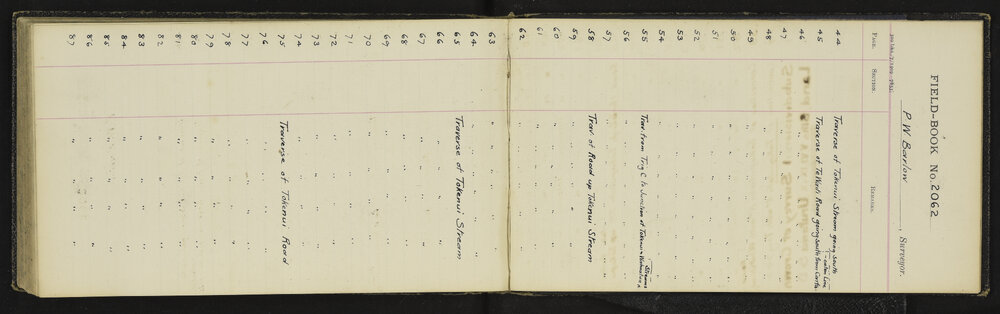 FIELD-BOOK No. 2062
P. W. Barlow, Surveyor.
PAGE. SECTION. REMARKS.
44 Traverse of Tokenui Stream going South
45 Traverse of Road going South from
46 " " " " "
47 " " " " "
48 " " " " "
49 " " " " "
50 " " " " "
51 " " " " "
52 " " " " "
53 " " " " "
54 " " " " "
55 Trav. from Trig C to Junction of Tokenui & Streams
56 " " " " "
57 " " " " "
58 Trav. of Road up Tokenui Stream
59 " " " "
60 " " " "
61 " " " "
62 " " " "
63 " " " "
64 " " " "
65 Traverse of Tokenui Stream
66 " " " "
67 " " " "
68 " " " "
69 " " " "
70 " " " "
71 " " " "
72 " " " "
73 " " " "
74 " " " "
75 Traverse of Tokenui Road
76 " " " "
77 " " " "
78 " " " "
79 " " " "
80 " " " "
81 " " " "
82 " " " "
83 " " " "
84 " " " "
85 " " " "
86 " " " "
87 " " " "